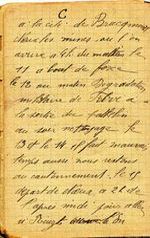 C
à la cité de Bracquemont
dans les mines. ou l'on
arrive à 4 h du matin le
11 à bout de force
le 12 au matin Dégradation
militaire de
la sortie du
au soir nettoyage le
13 et le 14 il fait mauvais
temps aussi nous restons
au cantonnement. le 15
départ de à 2 h de
l'après midi pour aller
à